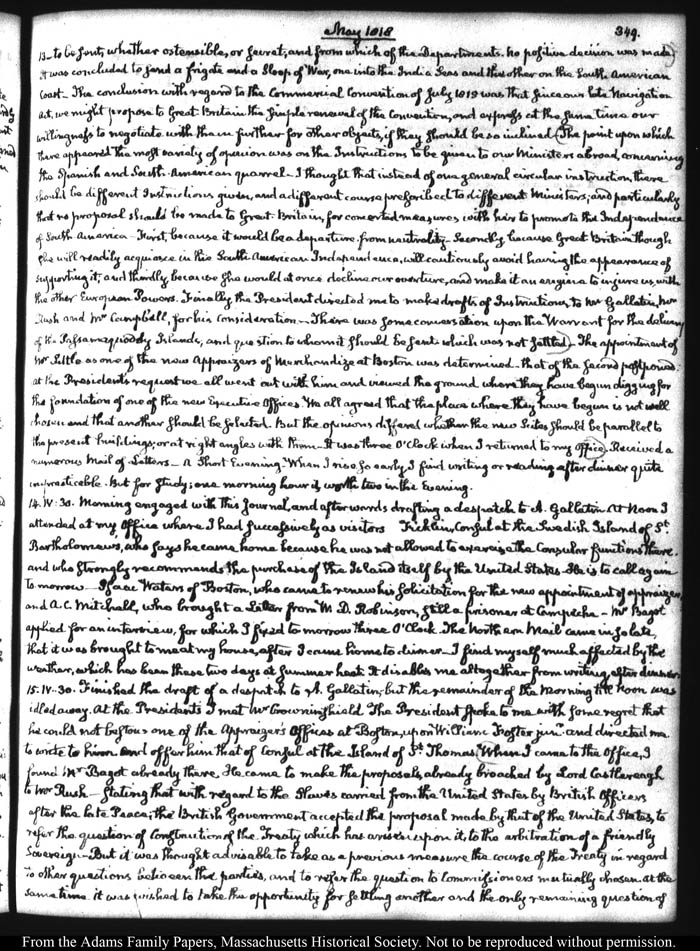 May 1818
349.
13. to be sent, whether ostensible, or secret, and from which of the Departments. no positive decision was made)
it was concluded to send a frigate and a Sloop of War, one into the India Seas and the other on the South American
Coast. The conclusion with regard to the Commercial Convention of July 1815 was that since our late Navigation
Act, we might propose to Great Britain the simple renewal of the Convention, and express at the same time our
willingness to negotiate with them further for other objects, if they should be so inclined. (The point upon which
there appeared the most variety of opinion was on the Instructions to be given to our Ministers abroad, concerning
the Spanish and South-American quarrel. I thought that instead of one general circular instruction, there
should be different Instructions given, and a different course prescribed to different Ministers; and particularly
that no proposal should be made to Great-Britain, for concerted measures with her to promote the Independence
of South America. First, because it would be a departure from neutrality. Secondly because Great Britain though
she will readily acquiesce in the South American Independence, will cautiously avoid having the appearance of
supporting it; and thirdly because she would at once decline our overture, and make it an engine to injure us, with
the other European Powers. Finally the President directed me to make drafts of Instructions, to Mr Gallatin, Mr
Rush and Mr Campbell, for his consideration. There was some conversation upon the Warrant for the delivery
of the Passamaquoddy Islands, and question to whom it should be sent which was not settled). The appointment of
Mr Little as one of the new Appraizers of Merchandize at Boston was determined. that of the second postponed:
at the President's request we all went out with him and viewed the ground where they have begun digging for
the foundation of one of the new Executive Offices. We all agreed that the place where they have begun is not well
chosen and that another should be selected. But the opinions differed whether the new Sites should be parallel to
the present buildings, or at right angles with them. It was three O'Clock when I returned to my Office. Received a
numerous Mail of Letters. A Short Evening. When I rise so early I find writing or reading after dinner quite
impracticable. But for Study, one morning hour is worth two in the Evening.
14. IV: 30. Morning engaged with this Journal, and afterwards drafting a despatch to A. Gallatin. At Noon I
attended at my Office where I had successively as visitors Ficklin, Consul at the Swedish Island of St.
Bartholomews, who says he came home because he was not allowed to exercise the Consular functions there.
and who strongly recommends the purchase of the Island itself by the United States. He is to call again
to morrow. Isaac Waters of Boston, who came to renew his solicitation for the new appointment of appraizer,
and A. C. Mitchell, who brought a Letter from M. D. Robinson, still a prisoner at Campeche. Mr Bagot
applied for an interview, for which I fixed to morrow three O'Clock. The Northern Mail came in so late,
that it was brought to me at my house, after I came home to dinner. I find myself much affected by the
weather, which has been these two days at summer heat. It disables me altogether from writing, after dinner.
15. IV. 30. Finished the draft of a despatch to A. Gallatin; but the remainder of the Morning till Noon was
idled away. At the Presidents I met Mr Crowninshield. The President spoke to me with some regret that
he could not bestow one of the Appraizer's Offices at Boston, upon William Foster junr and directed me
to write to him and offer him that of Consul at the Island of St. Thomas. (When I came to the Office, I
found Mr Bagot already there. He came to make the proposals already broached by Lord Castlereagh
to Mr Rush. Stating that with regard to the Slaves carried from the United States by British Officers
after the late Peace; the British Government accepted the proposal made by that of the United States, to
refer the question of Construction of the Treaty which has arisen upon it, to the arbitration of a friendly
Sovereign. But it was thought advisable to take as a previous measure the course of the Treaty in regard
to other questions between the parties, and to refer the question to Commissioners mutually chosen. at the
same time it was wished to take the opportunity for settling another and the only remaining question of
From the Adams Family Papers, Massachusetts Historical Society. Not to be reproduced without permission.